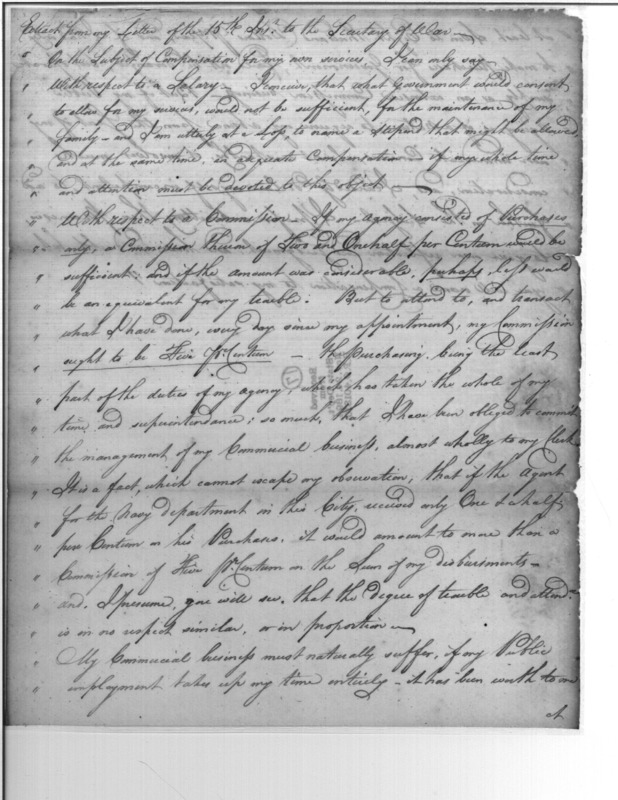 Extract from my Letter of the 15th Inst. to the Secretary of War —
" On the Subject of Compensation for my own services I can only say —
" With respect to a Salary — I conceive, that what Government would consent
" to allow for my services, would not be sufficient, for the maintenance of my
" family — and I am utterly at a loss, to name a Stipend that might be allowed,
" and at the same time, an adequate Compensation — if my whole time
" and attention must be devoted to this object —
" With respect to a Commission — If my agency consisted of Purchases
" only, a Commission thereon of Two and One half per Centum would be
" sufficient; and if the amount was considerable, perhaps, less would
" be an equivalent for my trouble. But to attend to, and transact
" what I have done, every day since my appointment, my Commission
" ought to be Five Pr. Centum — the Purchasing, being the least
" part of the duties of my agency, which has taken the whole of my
" time and superintendance; so much, that I have been obliged to commit
" the management of my Commercial business, almost wholly to my Clerk
" It is a fact, which cannot escape my observation, that if the Agent
" for the Navy department in this City, received only One & a half
" per Centum on his Purchases, it would amount to more than a
" Commission of Five Pr. Centum on the Sum of my disbursments —
" and, I presume, you will see, that the degree of trouble and attend.
" is in no respect similar, or in proportion —
" My Commercial business must naturally suffer, if my Public
" employment takes up my time entirely — it has been worth to me